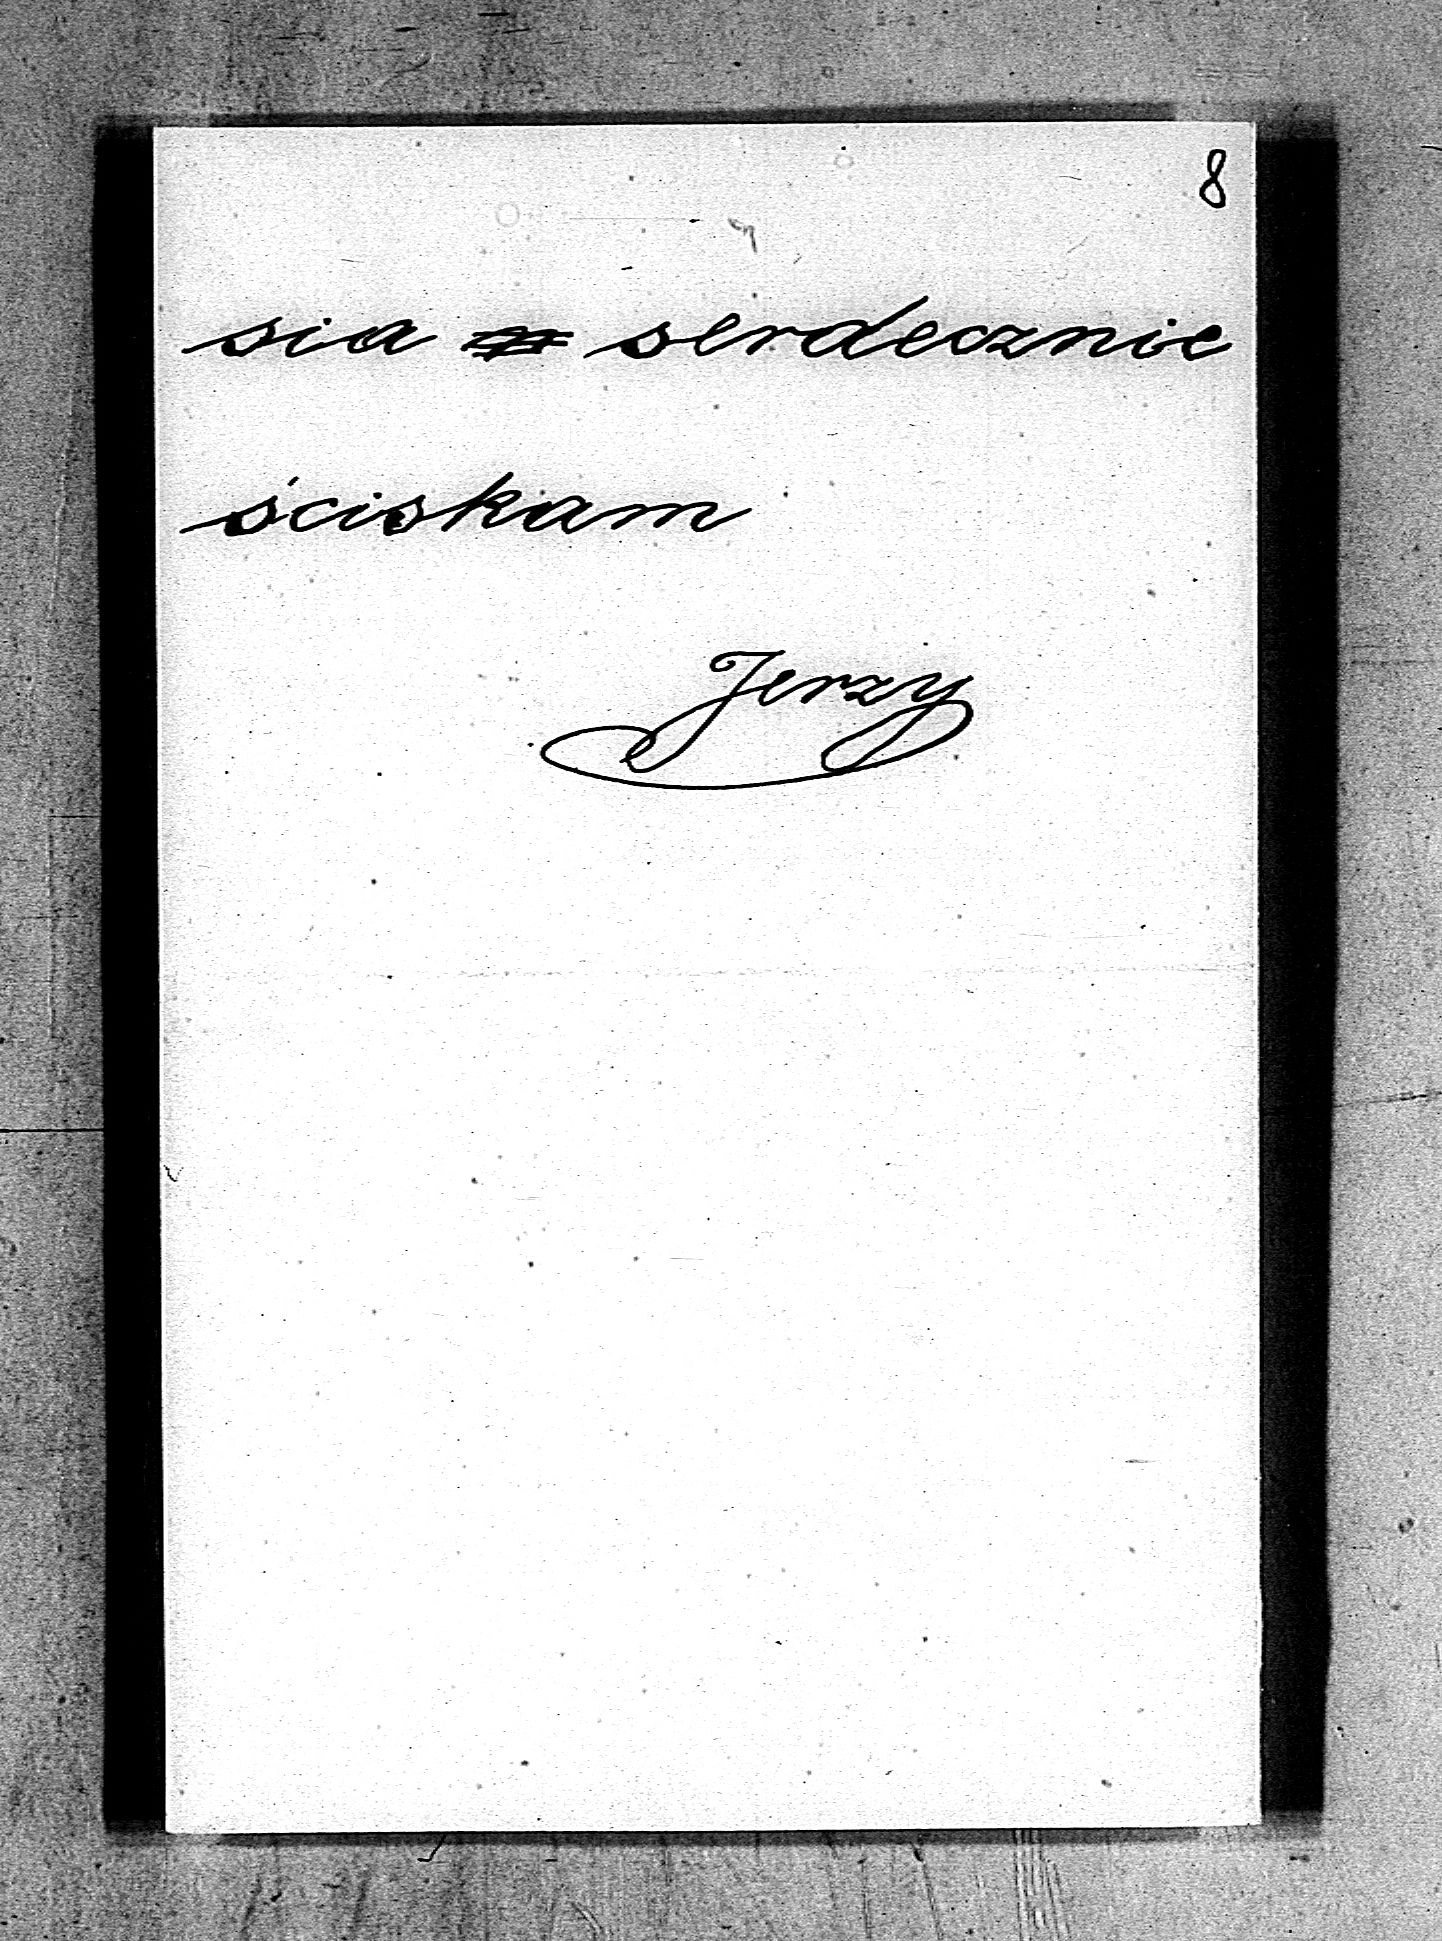 8
sia serdecznie
ściskam
Jerzy